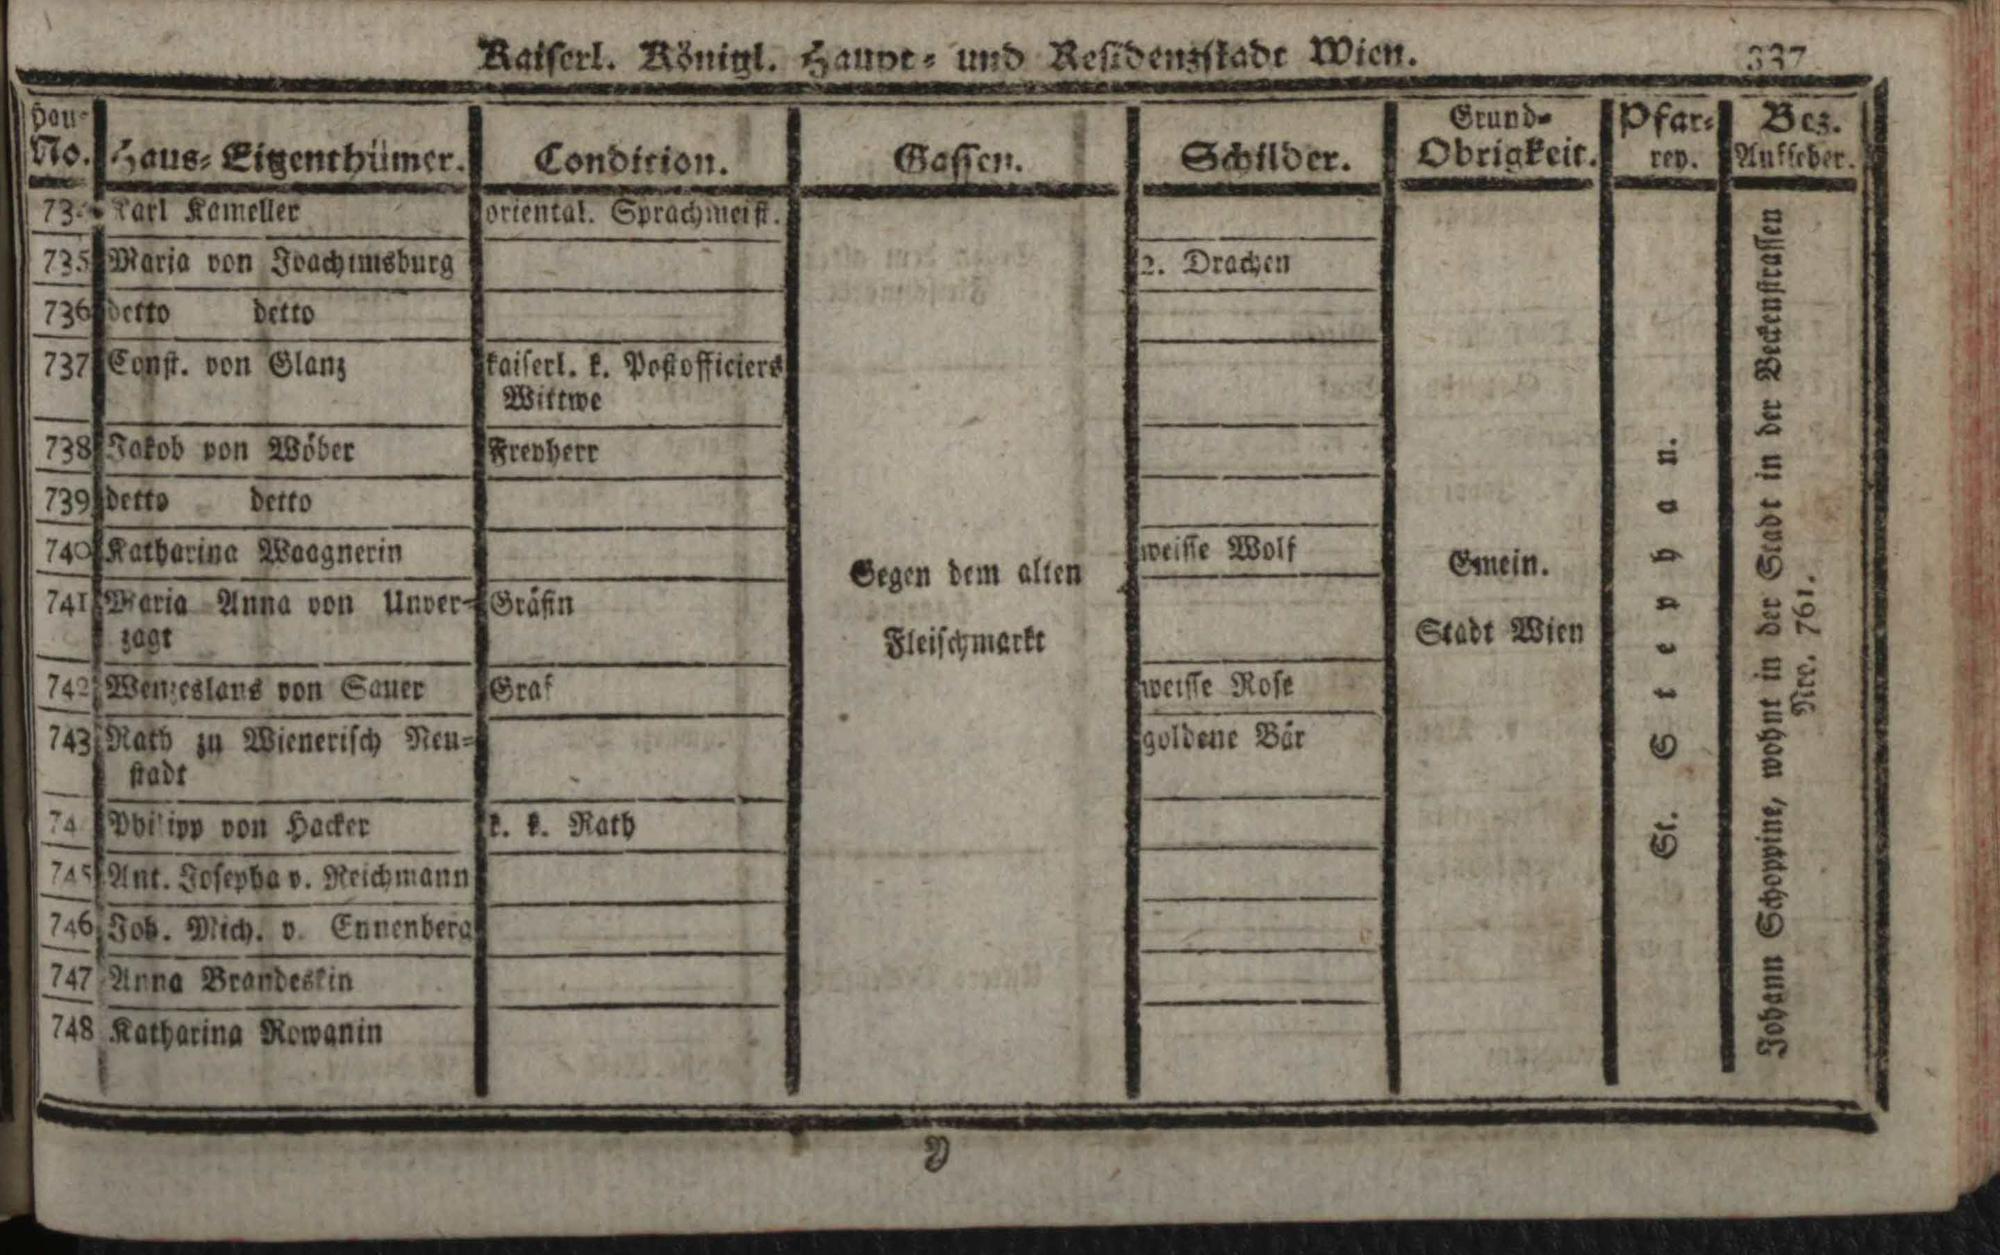 Kaiserl. Königl. Haupt- und Residenzstadt Wien. 337
Hau-
No. Haus-Eigenthümer. Condition. Gassen. Schilder. Grund-
Obrigkeit. Pfar-
rey. Bez.
Aufseher.
Karl Kameller oriental. Sprachmeist.
735 Maria von Joachimsburg 2. Drachen
736 detto detto
737 Const. von Glanz kaiserl. k. Postofficiers
Wittwe
738 Jakob von Wöber Freyherr
739 detto detto
740 Katharina Waagnerin weisse Wolf
741 Maria Anna von Unver- Gräfin
zagt
742 Wenzeslaus von Sauer Graf weisse Rose
743 Rath zu Wienerisch Neu- goldene Bär
stadt
74 Philipp von Hacker k. k. Rath
745 Ant. Josepha v. Reichmann
746 Joh. Mich. v. Ennenberg
747 Anna Brandeskin
748 Katharina Rowanin
Gegen dem alten
Fleischmarkt
Gmein.
Stadt Wien
St. Stephan.
Johann Schoppine, wohnt in der Stadt in der Beckenstrassen
Nro. 761.
Y